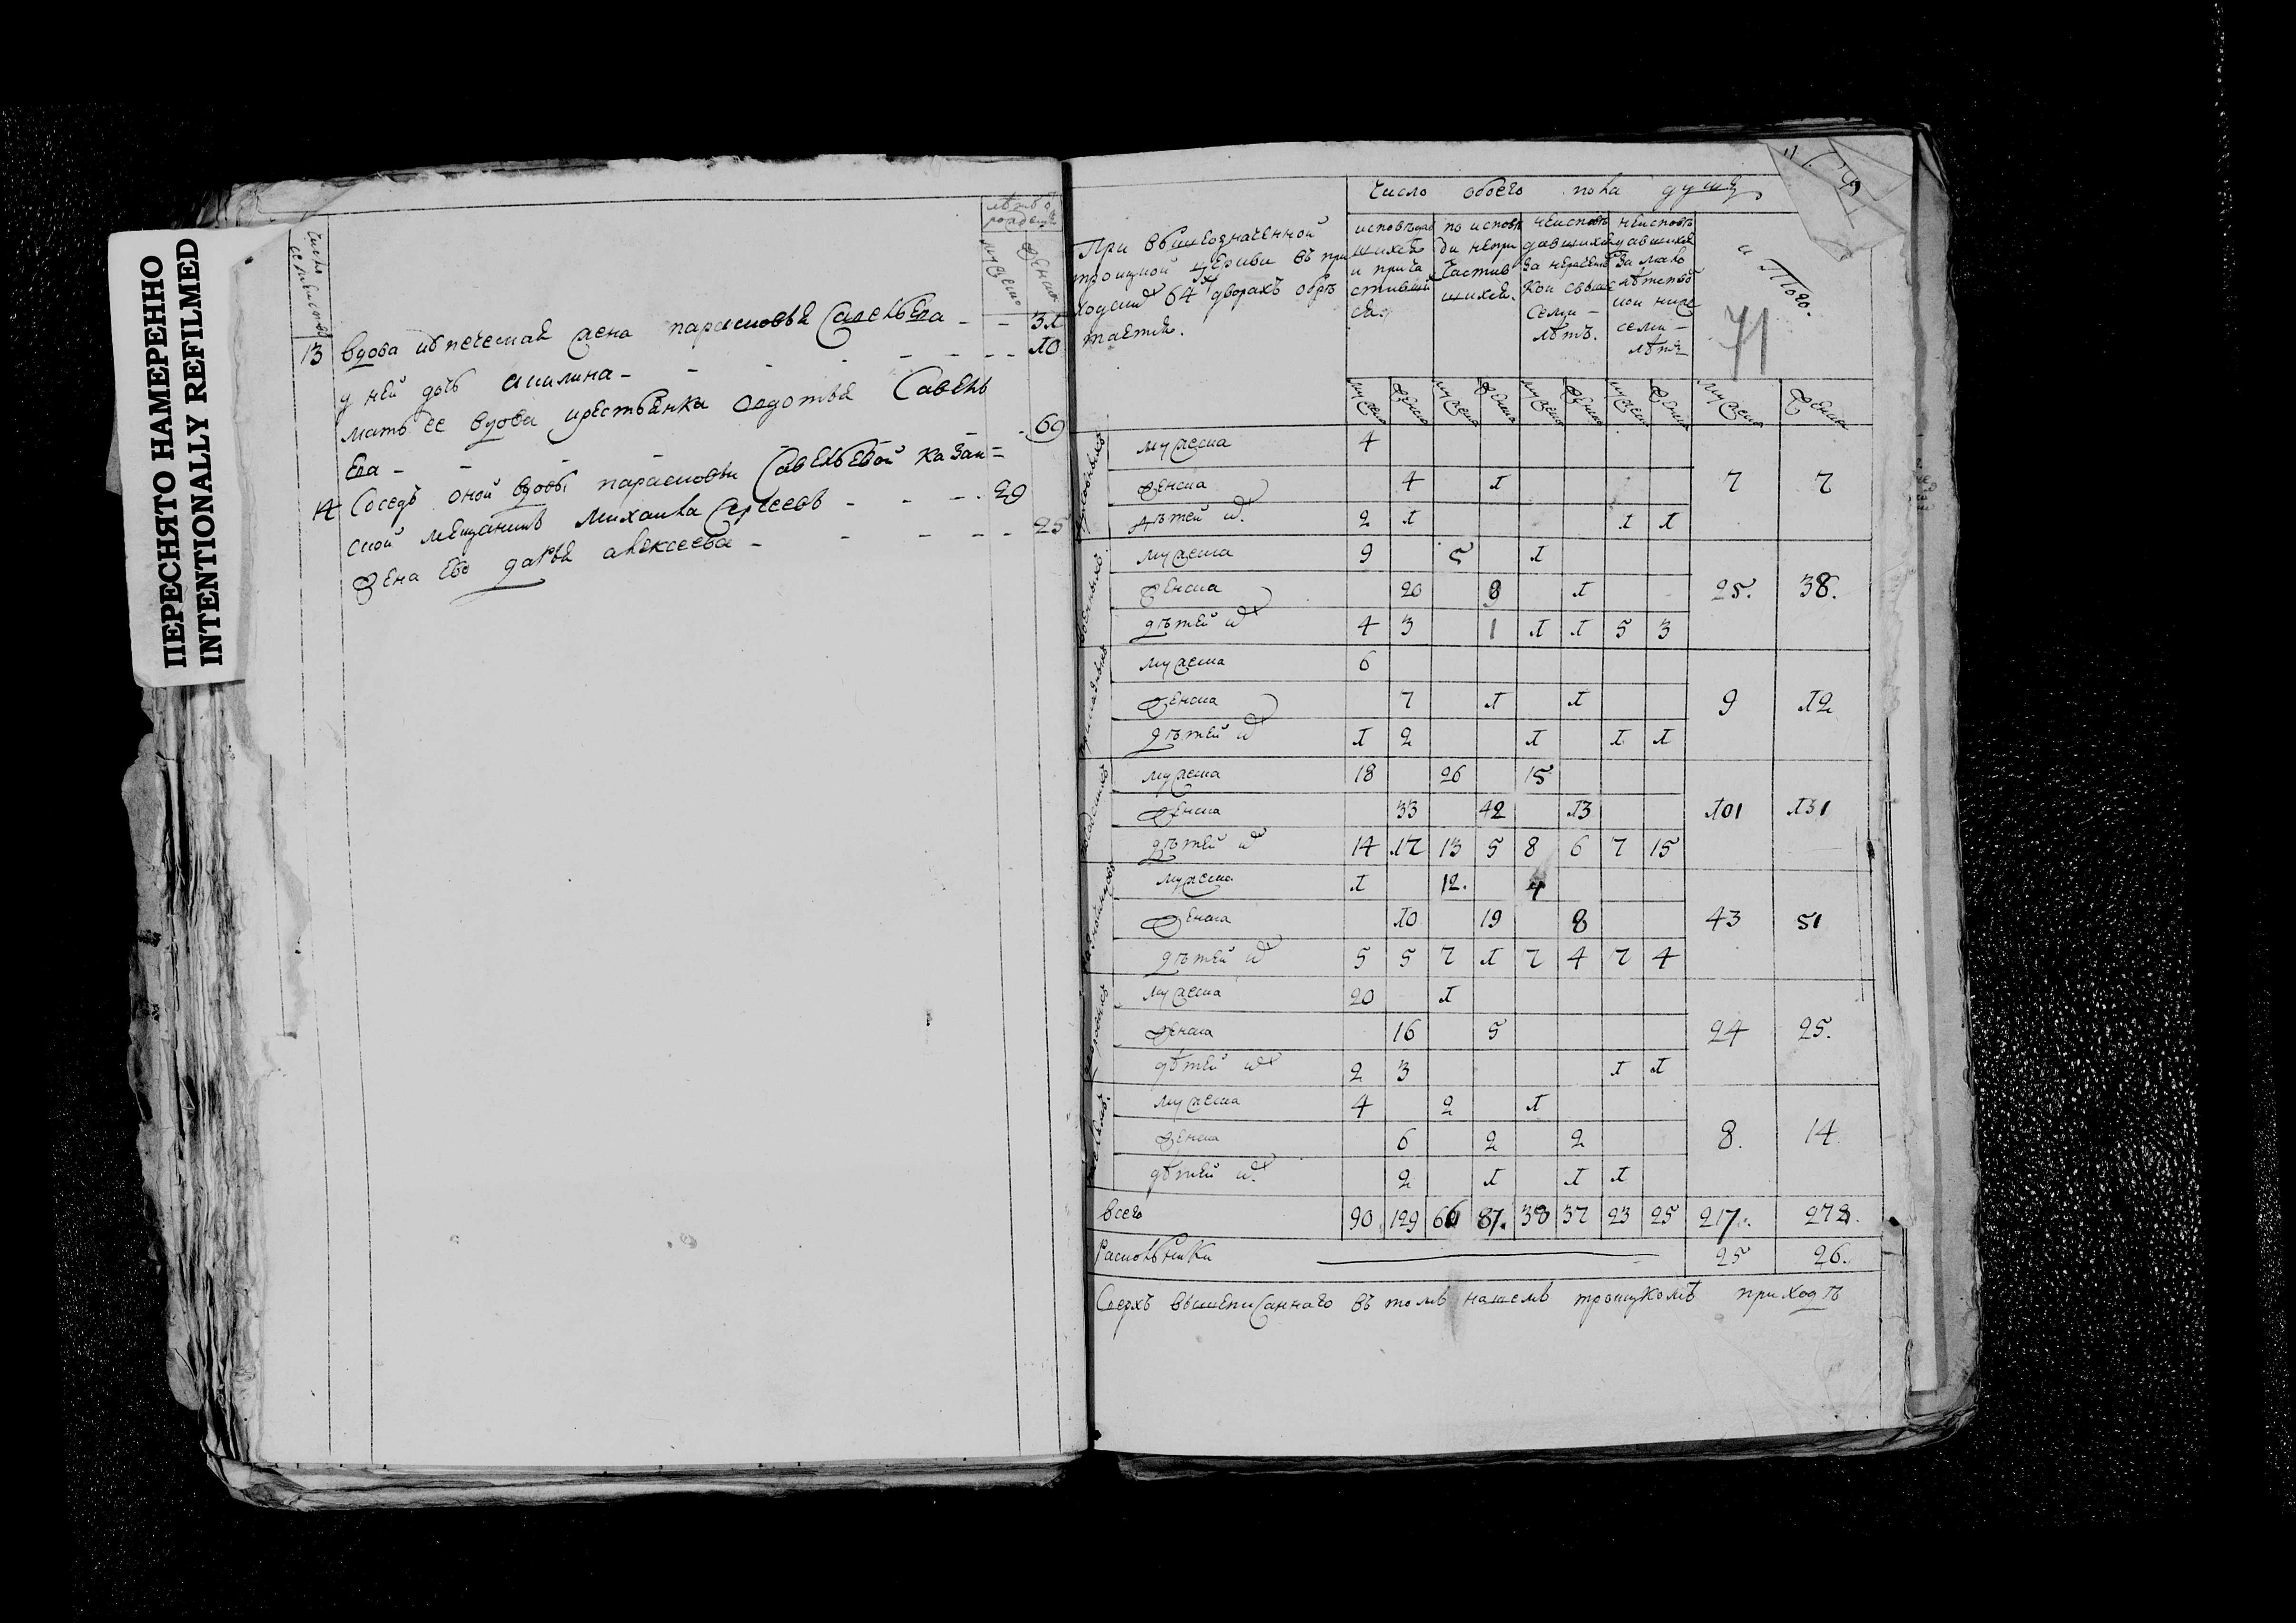 ПЕРЕСНЯТО НАМЕРЕННО
INTENTIONALLY REFILMED
число
лѣтъ ѿ
рождения
мужеска
женска
13 вдова купеческая жена парасковья савельева - - 31
у ней дочь акилина - - - - - - 10
мать ее вдова крестьянка федотья савель
ева - - - - - 69
14 Соседъ оной вдовы парасковьи савельевой казан=
ской мещанинъ михаила сергеевъ - - - 29
жена ево дарья алексеева - - - - - 25
При вышеозначенной
троицкой церкви въ при
ходскихъ 64х дворахъ обрѣ
тается.
число обоего пола душъ
исповѣдав
шихся
и прича
стивших
ся
по исповѣ
ди непри
частив
шихся.
неисповѣ
давшихся
за нерачениемъ
кои свыше
семи -
лѣтъ.
неисповѣ
давшихся
за мало
лѣтство
кои ниже
семи -
лѣтъ
и Того.
71
мужеска женска мужеска женска мужеска женска мужеска женска мужеска женска
духовныхъ
мужеска 4
женска 4 1 7 7
дѣтей их. 2 1 1 1
военныхъ
мужеска 9 5 1
женска 20 9 1 25. 38.
дѣтей их 4 3 1 1 1 5 3
приказныхъ
мужеска 6
женска 7 1 1 9 12
дѣтей их 1 2 1 1 1
посадскихъ
мужеска 18 26 15
женска 33 42 13 101 131
дѣтей их 14 17 13 5 8 6 7 15
мужеска 1 12. 4
женска 10 19 8 43 51
дѣтей их 5 5 7 1 7 4 7 4
дворовыхъ
мужеска 20 1
женска 16 5 24 25.
дѣтей их 2 3 1 1
мужеска 4 2 1
женска 6 2 2 8. 14
дѣтей их. 2 1 1 1
всего 90 129 66 87. 38 37 23 25 217. 278.
Раскольники 25 26.
Сверхъ вышеписаннаго въ томъ нашемъ троицкомъ приходѣ